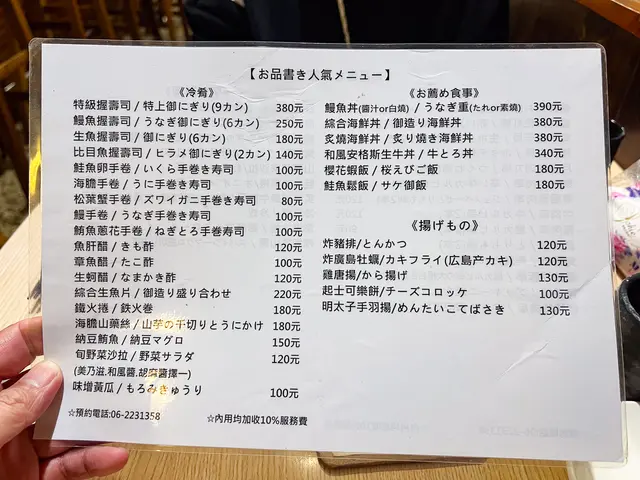 【お品書き人氣メニュー】
《冷肴》
特級握壽司/特上御にぎり(9カン) 380元
鰻魚握壽司/うなぎ御にぎり(6カン) 250元
生魚握壽司/御にぎり(6カン) 180元
比目魚握壽司/ヒラメ御にぎり(2カン) 140元
鮭魚卵手卷/いくら手巻き寿司 100元
海膽手卷/うに手巻き寿司 100元
松葉蟹手卷/ズワイガニ手巻き寿司 80元
鰻手卷/うなぎ手巻き寿司 100元
鮪魚蔥花手卷/ねぎとろ手巻寿司 100元
魚肝醋/きも酢 120元
章魚醋/たこ酢 100元
生蚵醋/なまかき酢 120元
綜合生魚片/御造り盛り合わせ 220元
鐵火捲/鉄火巻 180元
海膽山藥絲/山芋の千切りとうにかけ 180元
納豆鮪魚/納豆マグロ 150元
旬野菜沙拉/野菜サラダ 120元
(美乃滋,和風醬,胡麻醬擇一)
味增黃瓜/もろみきゅうり 100元
☆預約電話:06-2231358
☆內用均加收10%服務費
《お薦め食事》
鰻魚丼(醬汁or白燒)/うなぎ重(たれor素燒) 390元
綜合海鮮丼/御造り海鮮丼 380元
炙燒海鮮丼/炙り焼き海鮮丼 380元
和風安格斯生牛丼/牛とろ丼 340元
櫻花蝦飯/桜えびご飯 180元
鮭魚鬆飯/サケ御飯 180元
《揚げもの》
炸豬排/とんかつ 120元
炸廣島牡蠣/カキフライ(広島产カキ) 120元
雞唐揚/から揚げ 130元
起士可樂餅/チーズコロッケ 100元
明太子手羽揚/めんたいこてばさき 130元